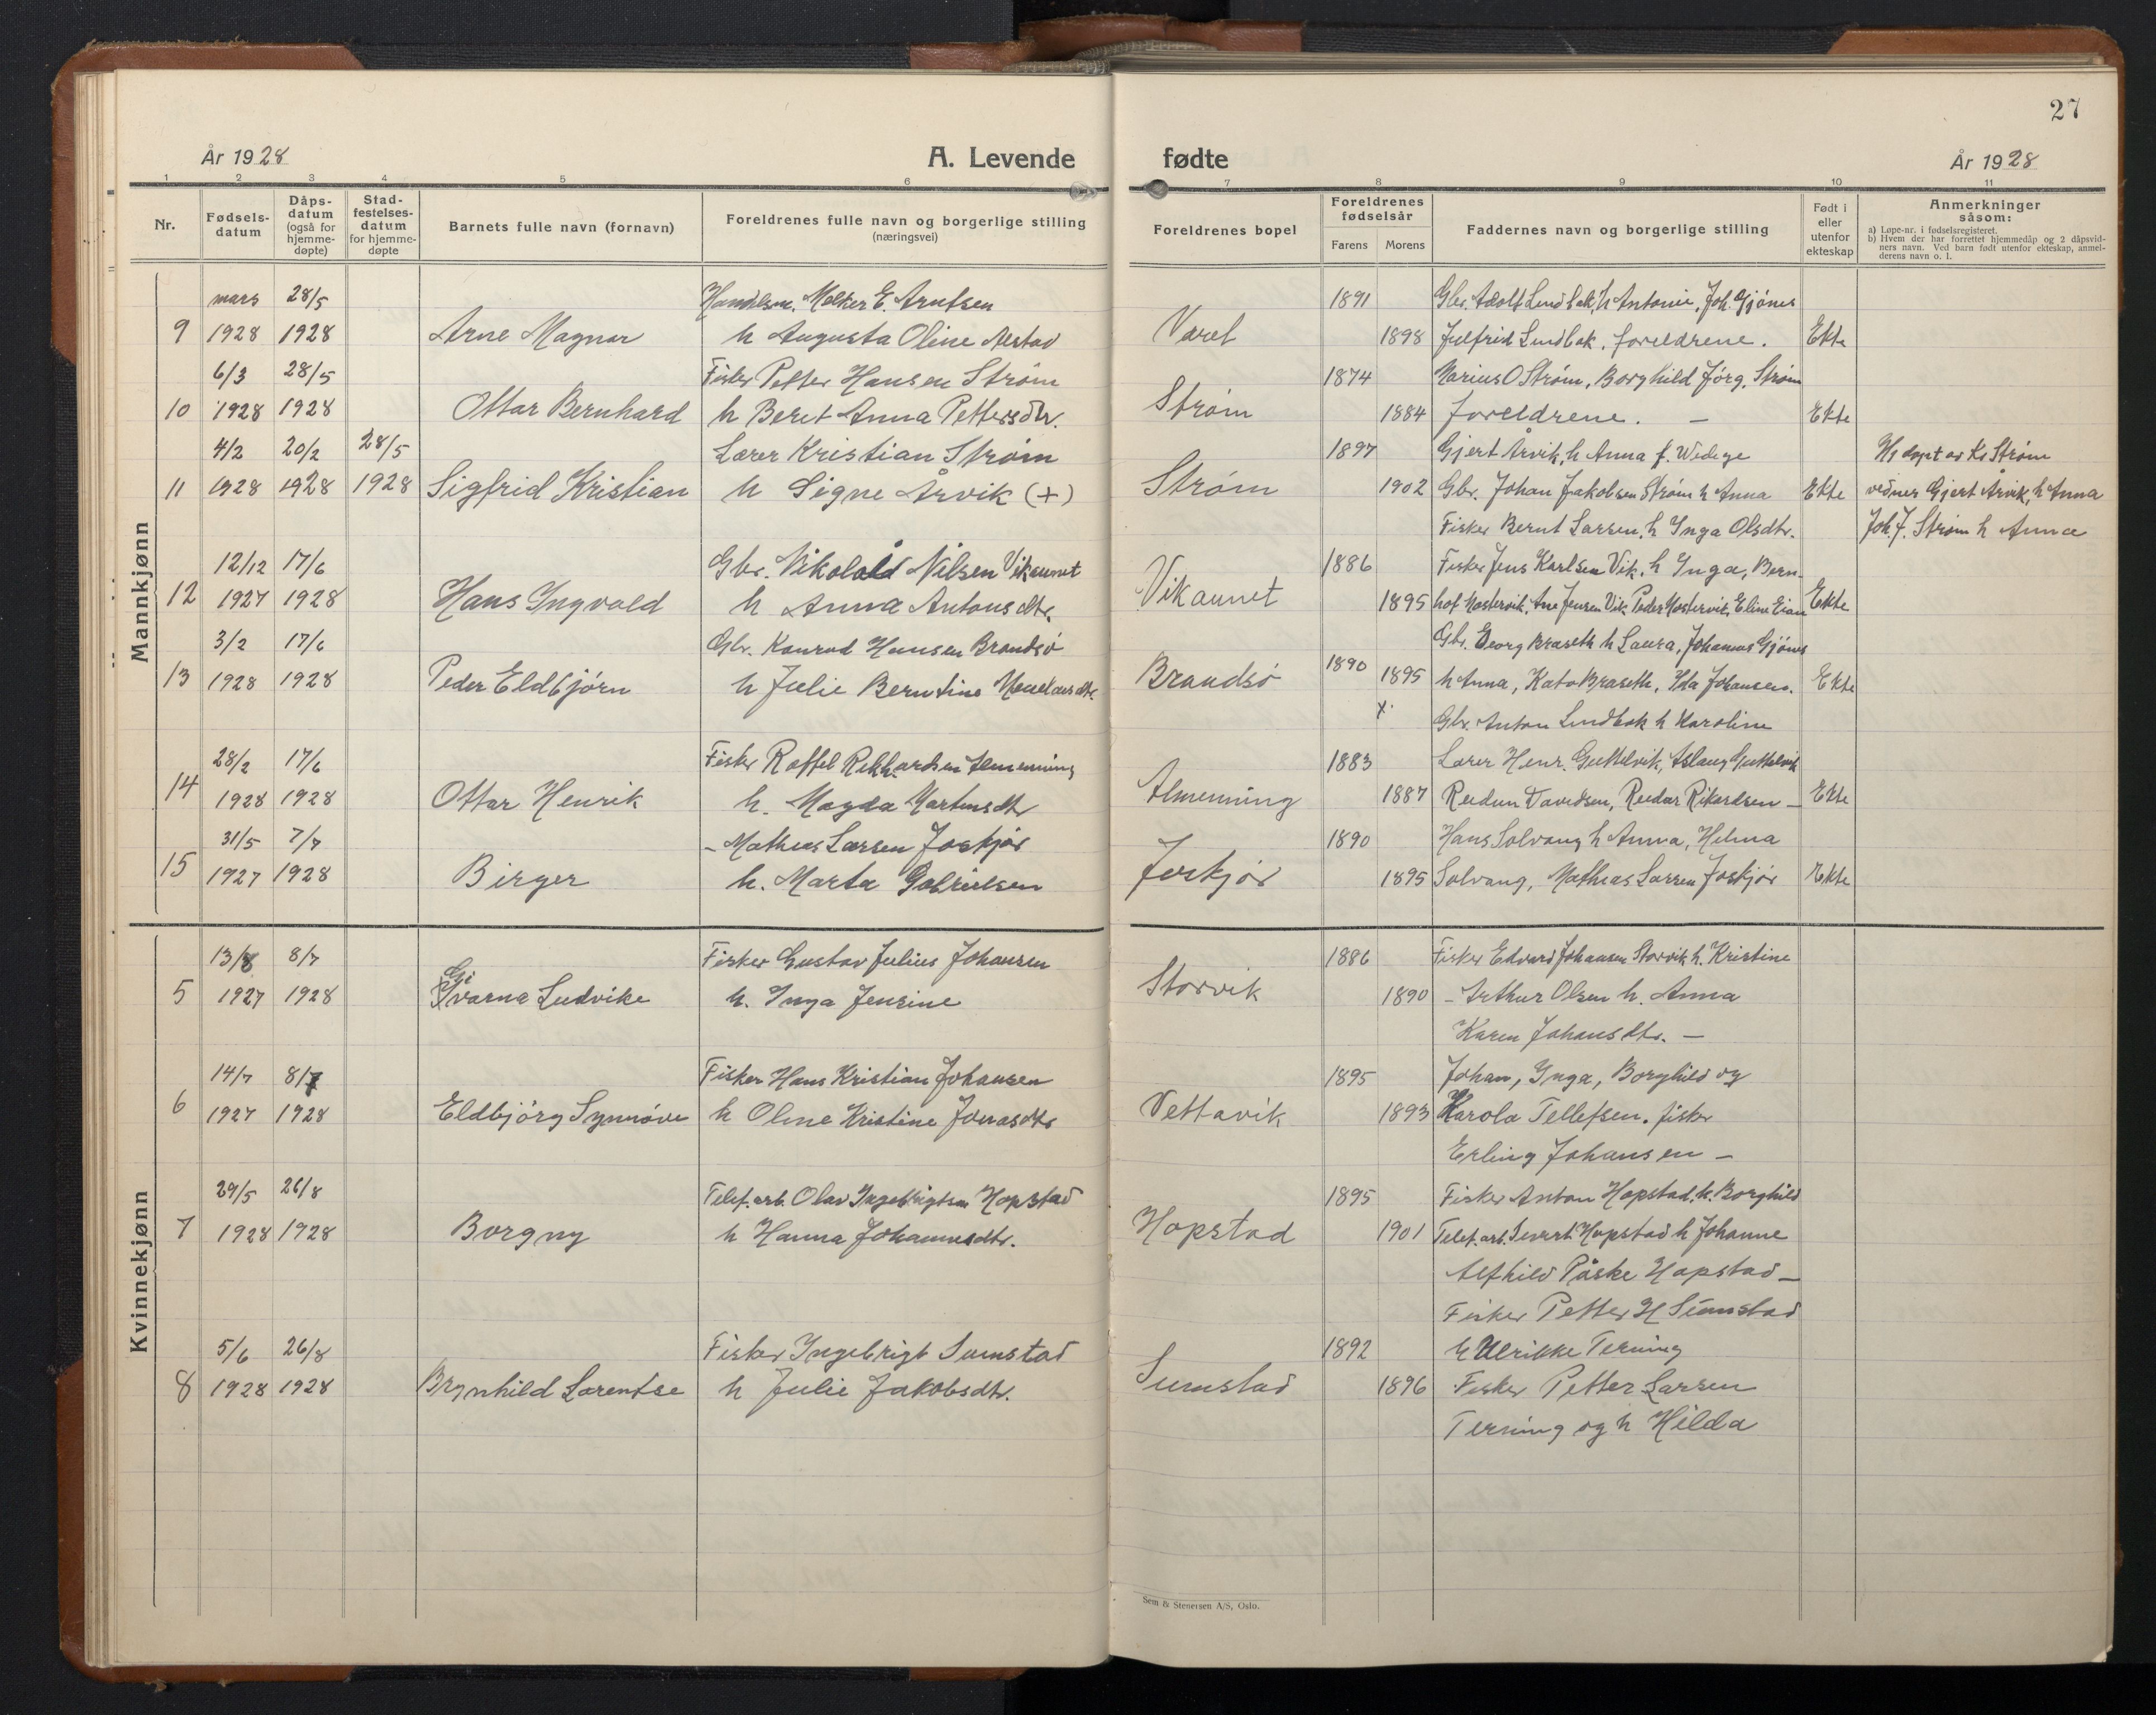 27
År 1928
A. Levende
fødte
År 1928
1 2 3 4 5 6 7 8 9 10 11
Nr.
Fødsels-
datum
Dåps-
datum
(også for
hjemme-
døpte)
Stad-
festelses-
datum
for hjemme-
døpte
Barnets fulle navn (fornavn)
Foreldrenes fulle navn og borgerlige stilling
(næringsvei)
Foreldrenes bopel
Foreldrenes
fødselsår
Farens Morens
Faddernes navn og borgerlige stilling
Født i
eller
utenfor
ekteskap
Anmerkninger
såsom:
a) Løpe-nr. i fødselsregisteret.
b) Hvem der har forrettet hjemmedåp og 2 dåpsvid-
ners navn. Ved barn født utenfor ekteskap, anmel-
derens navn o. l.
Mannkjønn
mars 28/5 Handelsm. Melker E. Arntsen 1891 Gbr. Adolf Lindbak, h Antonie, Joh. Gjönes
9 1928 1928 Arne Magnar h Augusta Oline Nestad 1898 Julfrid Lindbak. foreldrene. Ekte
6/3 28/5 Fisker Petter Hansen Strøm 1874 Marius O Strøm, Borghild Jörg. Strøm
10 1928 1928 Ottar Bernhard h Beret Anna Pettersdtr. Strøm 1884 foreldrene. — Ekte
4/2 20/2 28/5 Lærer Kristian Strøm 1897 Gjert Årvik, h Anna f. Wedege Hj døpt av Kr Strøm
11 1928 1928 1928 Sigfrid Kristian h Signe Årvik (+) Strøm 1902 Gbr. Johan Jakobsen Strøm h Anna Ekte vidner Gjert Årvik, h Anna
Fisker Bernt Larsen, h Inga Olsdtr. Joh J. Strøm h Anna
12/12 17/6 Gbr. Nilsen Vikaunet 1886 Fisker Jens Karlsen Vik, h Inga, Bern-
12 1927 1928 Hans Ingvald h Anna Antonsdtr. Vikaunet 1895 hof Nostervik, Ane Jensen Vik Peder Nostervik, Eline Eian Ekte
3/2 17/6 Gbr. Konrad Hansen Brandsø Gbr. Georg Braseth h Laura, Johannes Gjönes
13 1928 1928 Peder Eldbjörn h Julie Berntine Brandsø 1890 1895 h Anna, Kato Braseth, Ida Johansen. Ekte
x Gbr. Anton Lindbak h Karoline
28/2 17/6 Fisker Roffel Rikhardsen Almenning 1883 Lærer Henr. Guttelvik, Aslaug Guttelvik
14 1928 1928 Ottar Henrik h. Magda Martinsdtr Almenning 1887 Reidun Davidsen, Reidar Rikardsen — Ekte
31/5 7/7 - Mathias Larsen Joskjör 1890 Hans Solvang h Anna, Helma
15 1927 1928 Birger h. Marta Gabrielsen Joskjör 1895 Solvang, Mathias Larsen Joskjör Ekte
Kvinnekjønn
13/8 8/7 Fisker Gustav Julius Johansen 1886 Fisker Edvard Johansen Storvik h. Kristine
5 1927 1928 Ludvike h. Inga Jensine Storvik 1890 - Arthur Olsen h. Anna
Karen Johansdtr. —
14/7 8/7 Fisker Hans Kristian Johansen 1895 Johan, Inga, Borghild og
6 1927 1928 Eldbjörg Synnöve h Oline Kristine Jonasdtr Vettavik 1893 Karola Tellefsen. fisker
Erling Johansen —
29/5 26/8 Telef. arb. Olav Ingebrigtsen Hopstad 1895 Fisker Anton Hopstad, h. Borghild
7 1928 1928 Borgny h Hanna Johannesdtr. Hopstad 1901 Telef. arb. Sivert Hopstad h Johanne
Alfhild Påske Hopstad —
Fisker Petter H Sumstad
5/6 26/8 Fisker Ingebrigt Sumstad 1892 h Ulrikke Terning
8 1928 1928 Brynhild Lorentse h Julie Jakobsdtr. Sumstad 1896 Fisker Petter Larsen
Terning og h Hilda
Sem & Stenersen A/S, Oslo.